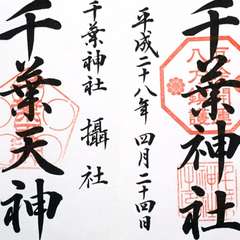 千葉神社
平成二十八年 四月二十四日
千葉神社 攝社
千葉天神